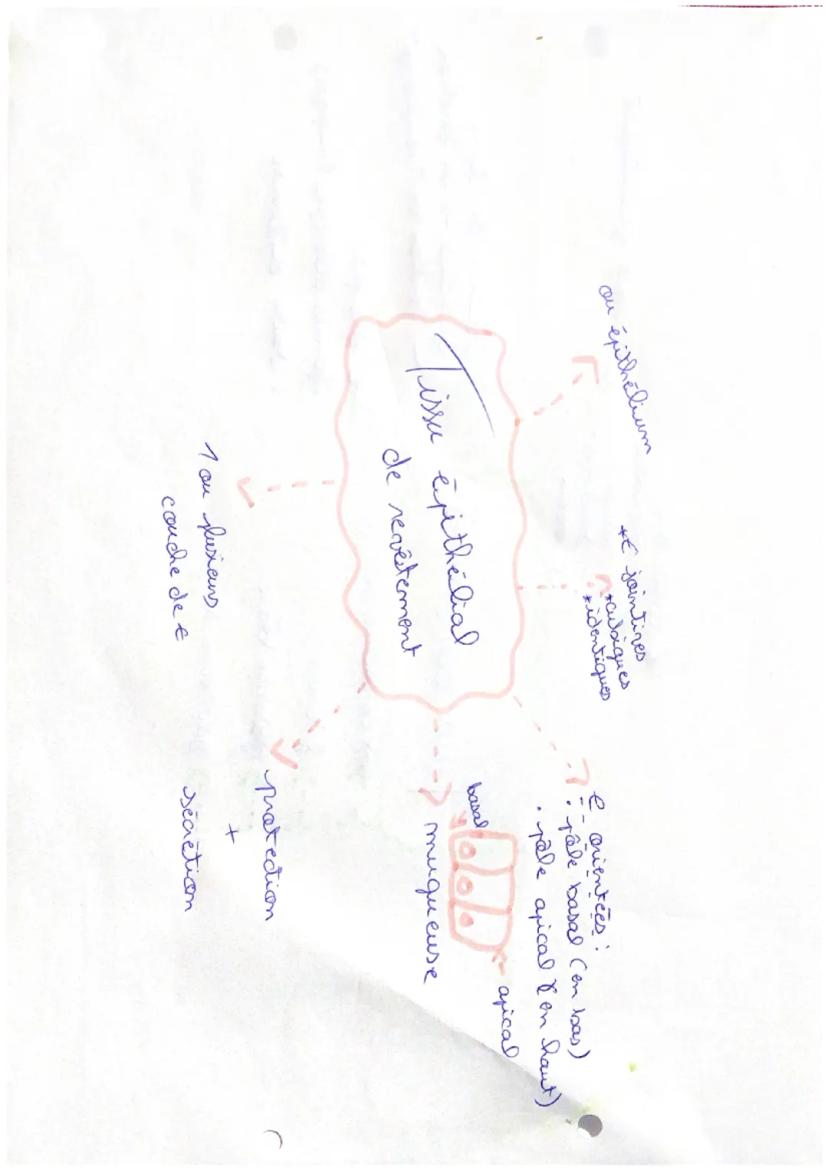 Tissu épithélial
de revêtement
ou épithélium
* € jointives
* cubiques
* identiques
€ orientées :
. pôle basal (en bas)
. pôle apical (en haut)
basal
apical
muqueuse
protection
+
sécrétion
1 ou plusieurs
couche de €